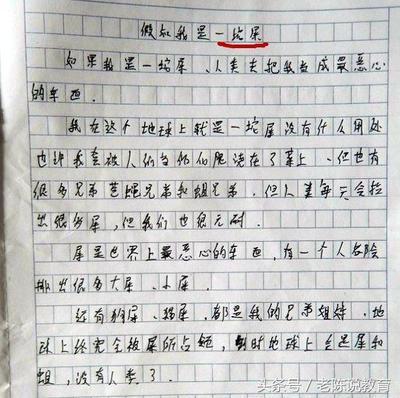 假如我是一坨屎
如果我是一坨屎、人类会把我当成最恶心
的东西.
我在这个地球上就是一坨屎没有什么用处
也许我会被人们当作肥浇在了菜上.但也有
很多兄弟苍蝇兄弟和蛆兄弟.但人每天会拉
出很多屎,但我们也很无耐.
屎是世界上最恶心的东西,有一个人
出很多大屎、小屎.
还有狗屎、猫屎、都是我的兄弟姐妹.地
球上终完会被屎所占领,到时地球上全是屎和
蛆,没有人类了.
头条号/老陈说教育